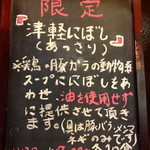 限定
津軽にぼし
(あっさり)
※鶏・豚ガラの動物系
スープににぼしをあ
わせ、油を使用せず
に提供させて頂き
ます。(具は豚バラ、メンマ
ネギのみで